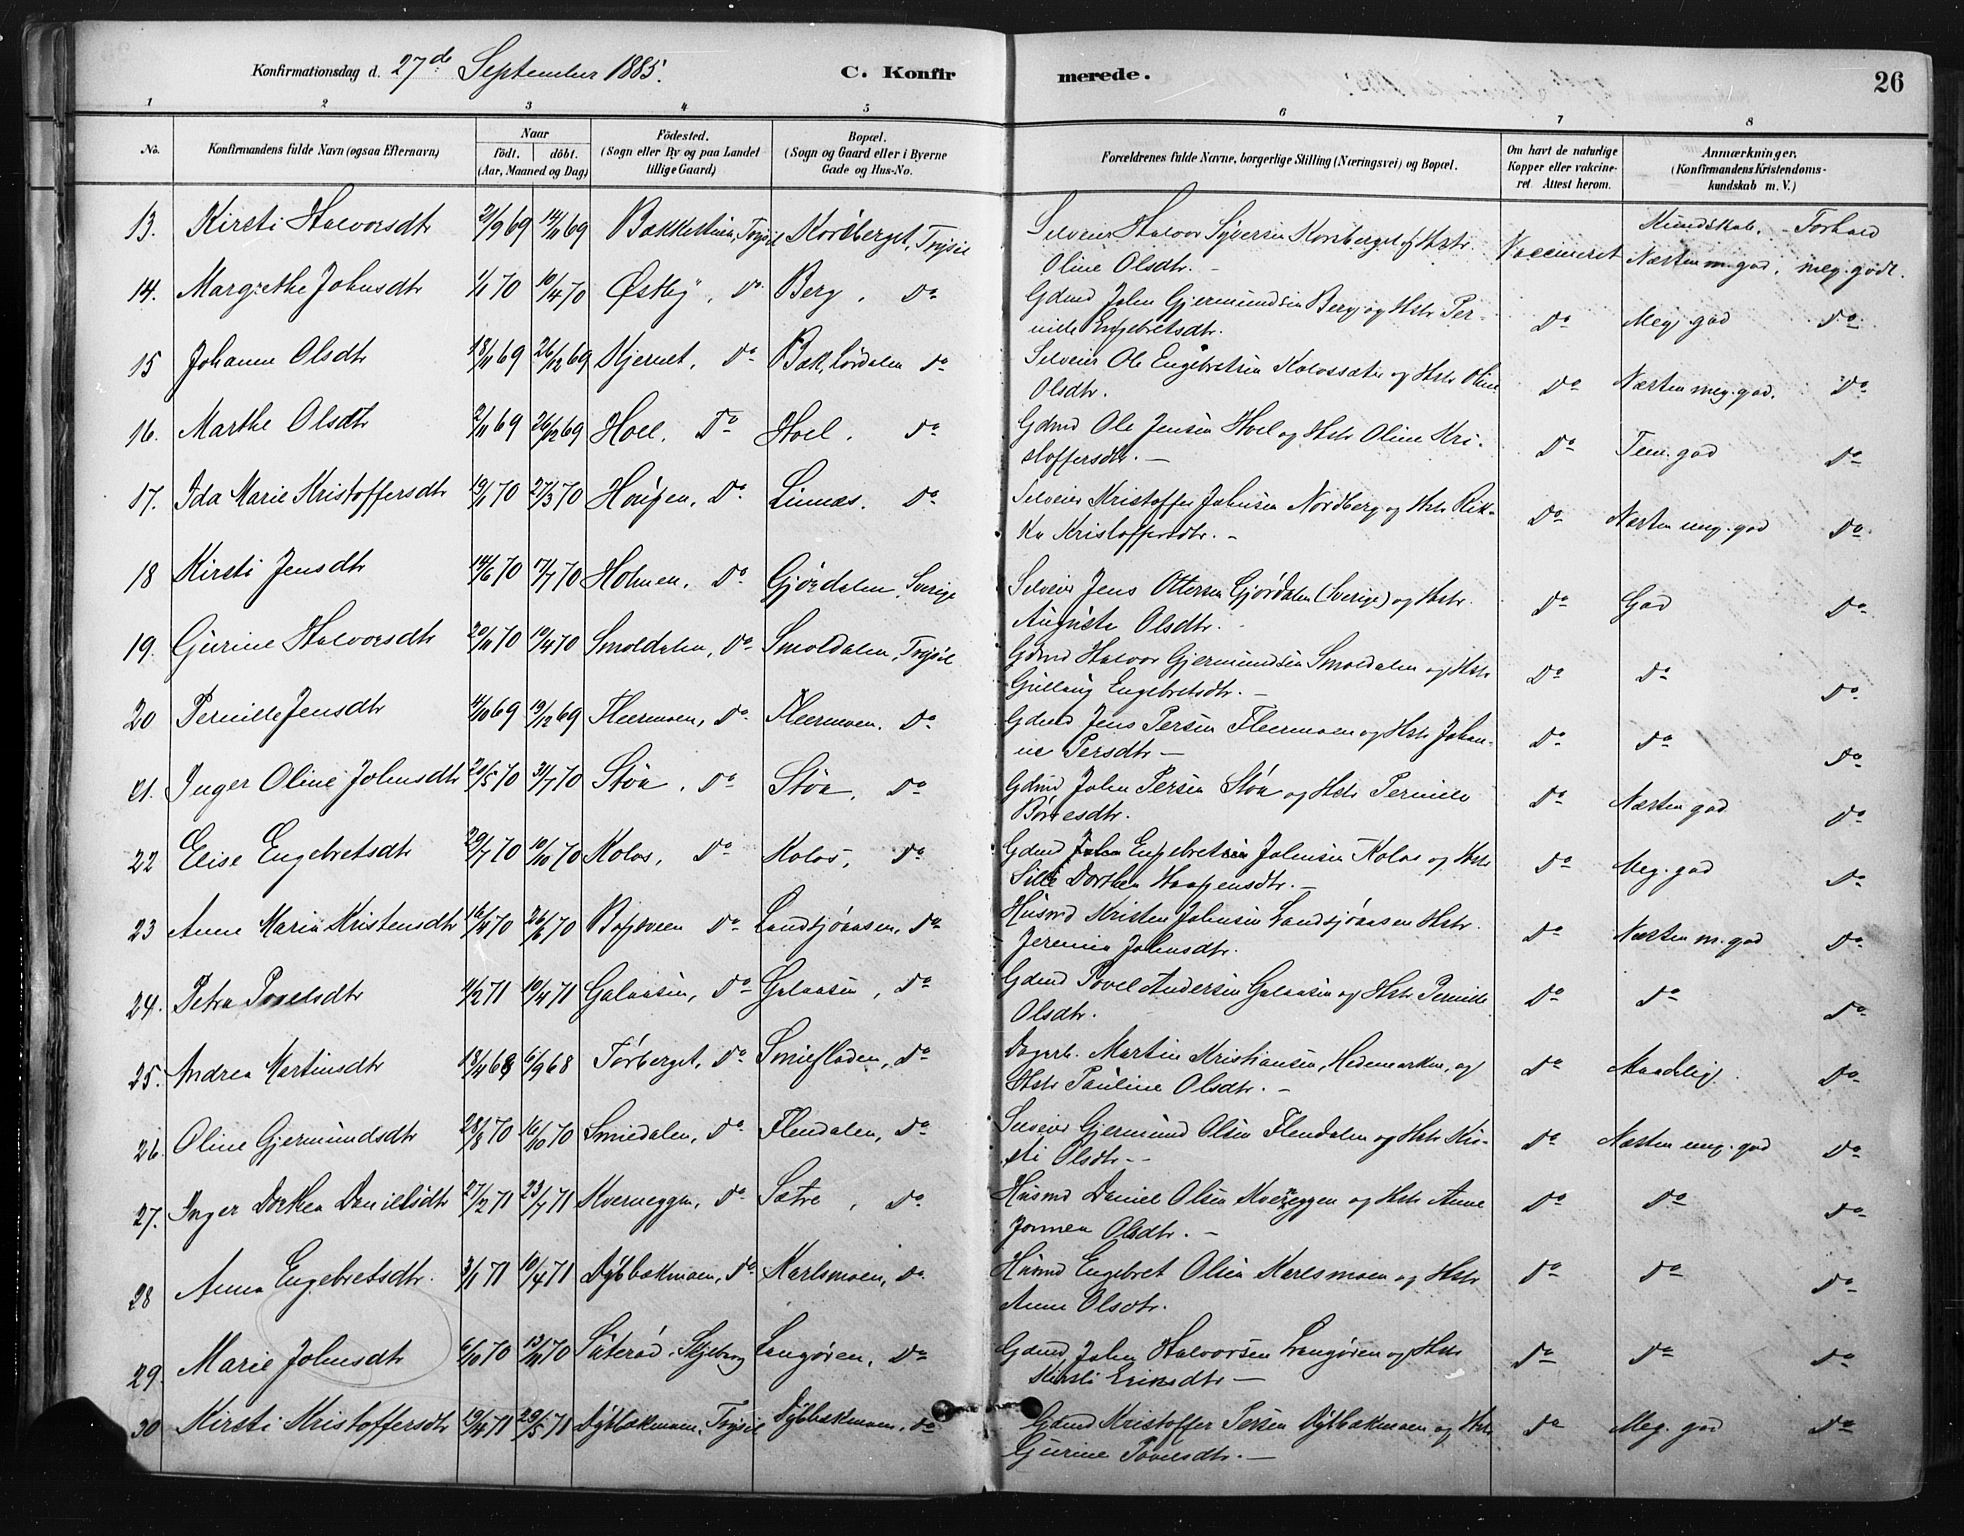 Konfirmationsdag d. 27de September 1885. C. Konfirmerede. 26
1 2 3 4 5 6 7 8
No. Konfirmandens fulde Navn (ogsaa Efternavn) Naar födt. döbt. (Aar, Maaned og Dag) Födested. (Sogn eller By og paa Landet tillige Gaard) Bopæl. (Sogn og Gaard eller i Byerne Gade og Hus-No. Forældrenes fulde Navne, borgerlige Stilling (Næringsvei) og Bopæl. Om havt de naturlige Kopper eller vakcineret Attest herom. Anmærkninger. (Konfirmandens Kristendomskundskab m. V.)
Kundskab. Forhold
13. Kirsti Halvorsdtr 21/9 69 14/11 69 Trysil Korsberget, Trysil Selveier Halvor Korsberget og Hstr. Vaccineret Næsten m. god. meg. godt.
Oline Olsdtr. -
14. Margrethe Johnsdtr 1/1 70 10/4 70 Østby, Do Berg, Do Gdmd John Gjermundsen Berg og Hstr Per- Do Meg. god Do
nille Engebretsdtr.
15 Johanne Olsdtr 18/11 69 26/12 69 Kjernet, Do Bak, Lørdalen Do Selveier Ole Engebretsen Kolossæter og Hstr Oline Do Næsten meg. god. Do
Olsdtr.
16. Marthe Olsdtr 2/11 69 26/12 69 Hoel, Do Hoel. Do Gdmd Ole Jensen Hoel og Hstr Oline Kri- Do Tem. god Do
stoffersdtr. -
17. Ida Marie Kristoffersdtr 19/1 70 27/3 70 Haugen, Do Linnæs. Do Selveier Kristoffer Johnsen Nordberg og Hstr Rik- Do Næsten meg. god Do
ke Kristoffersdtr. -
18 Kirsti Jensdtr 14/6 70 17/7 70 Holmen, Do Gjørdalen Sverige Selveier Jens Ottersen Gjørdalen (Sverige) og Hstr. Do God Do
Auguste Olsdtr.
19. Gurine Halvorsdtr 10/4 70 Smoldalen, Do Smoldalen, Trysil Gdmd Halvor Gjermundsen Smoldalen og Hstr Do Do Do
Gullaug Engebretsdtr. -
20 Pernille Jensdtr 11/10 69 19/12 69 Fleermoen, Do Fleermoen. Do Gdmd Jens Persen Fleermoen og Hstr Johan- Do Do Do
ne Persdtr -
21. Inger Oline Johnsdtr 21/5 70 31/7 70 Støa, Do Støa, Do Gdmd John Persen Støa og Hstr Pernille Do Næsten god Do
Børresdtr.
22 Elise Engebretsdtr 29/7 70 10/10 70 Kolos, Do Kolos, Do Gdmd Engebret Johnsen Kolos og Hstr Do Meg. god Do
Sille Dorthea Haagensdtr. -
23 Anne Maria Kristensdtr 16/4 70 26/6 70 Do Landsjøaasen, Do Husmd Kristen Johnsen Landsjøaasen Hstr. Do Næsten m. god Do
Jeremia Johnsdtr.
24. Petra Povelsdtr 11/2 71 10/4 71 Galaasen, Do Galaasen, Do Gdmd Povel Andersen Galaasen og Hstr Pernille Do Do Do
Olsdtr.
25. Andrea Martinsdtr 18/4 68 6/9 68 Tørberget, Do Do Dagarb. Martin Kristiansen, Hedemarken, og Do Maadelig. Do
Hstr Pauline Olsdtr. -
26. Oline Gjermundsdtr 28/8 70 16/10 70 Smedalen, Do Flendalen, Do Selveier Gjermund Olsen Flendalen og Hstr Kir- Do Næsten meg. god Do
sti Olsdtr. -
27. Inger Dorthea Danielsdtr 27/2 71 23/7 71 Kverneggen, Do Sætre, Do Husmd Daniel Olsen Kverneggen og Hstr Anne Do Do Do
Olsdtr. -
28 Anna Engebretsdtr. 3/1 71 10/4 71 Dybbækmoen, Do Karlsmoen, Do. Husmd Engebret Olsen Karlsmoen og Hstr Do Do Do
Anne Olsdtr.
29. Marie Johnsdtr 6/10 70 13/11 70 Skjeberg Langøren, Do Gdmd John Halvorsen Langøren og Hstr Do Do Do
Kirsti Eriksdtr -
30 Kirsti Kristoffersdtr 19/4 71 29/5 71 Dybbækmoen, Trysil Dybbækmoen, Do Gdmd Kristoffer Persen Dybbækmoen og Hstr Do Meg. god Do
Gurine Povelsdtr. -